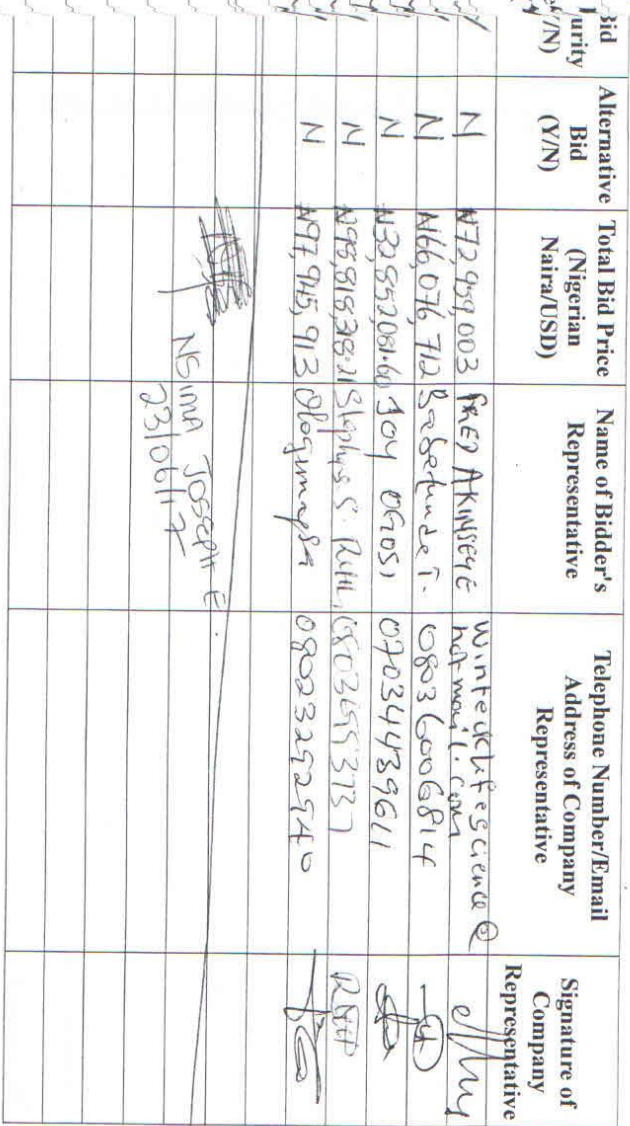 Bid
urity
(Y/N)
Alternative
Bid
(Y/N)
Total Bid Price
(Nigerian
Naira/USD)
Name of Bidder's
Representative
Telephone Number/Email
Address of Company
Representative
Signature of
Company
Representative
N ₦72,959,003 FRED AKINSEYE wintecklifescience@
hotmail.com
N ₦66,076,712 Babatunde T. 08036006814
N ₦32,852081.60 JOY OGOSI 07034439611
N ₦98,818,318.21 Stephens S.
N ₦97,945,913 08023292540
NSIMA JOSEPH E.
23/06/17